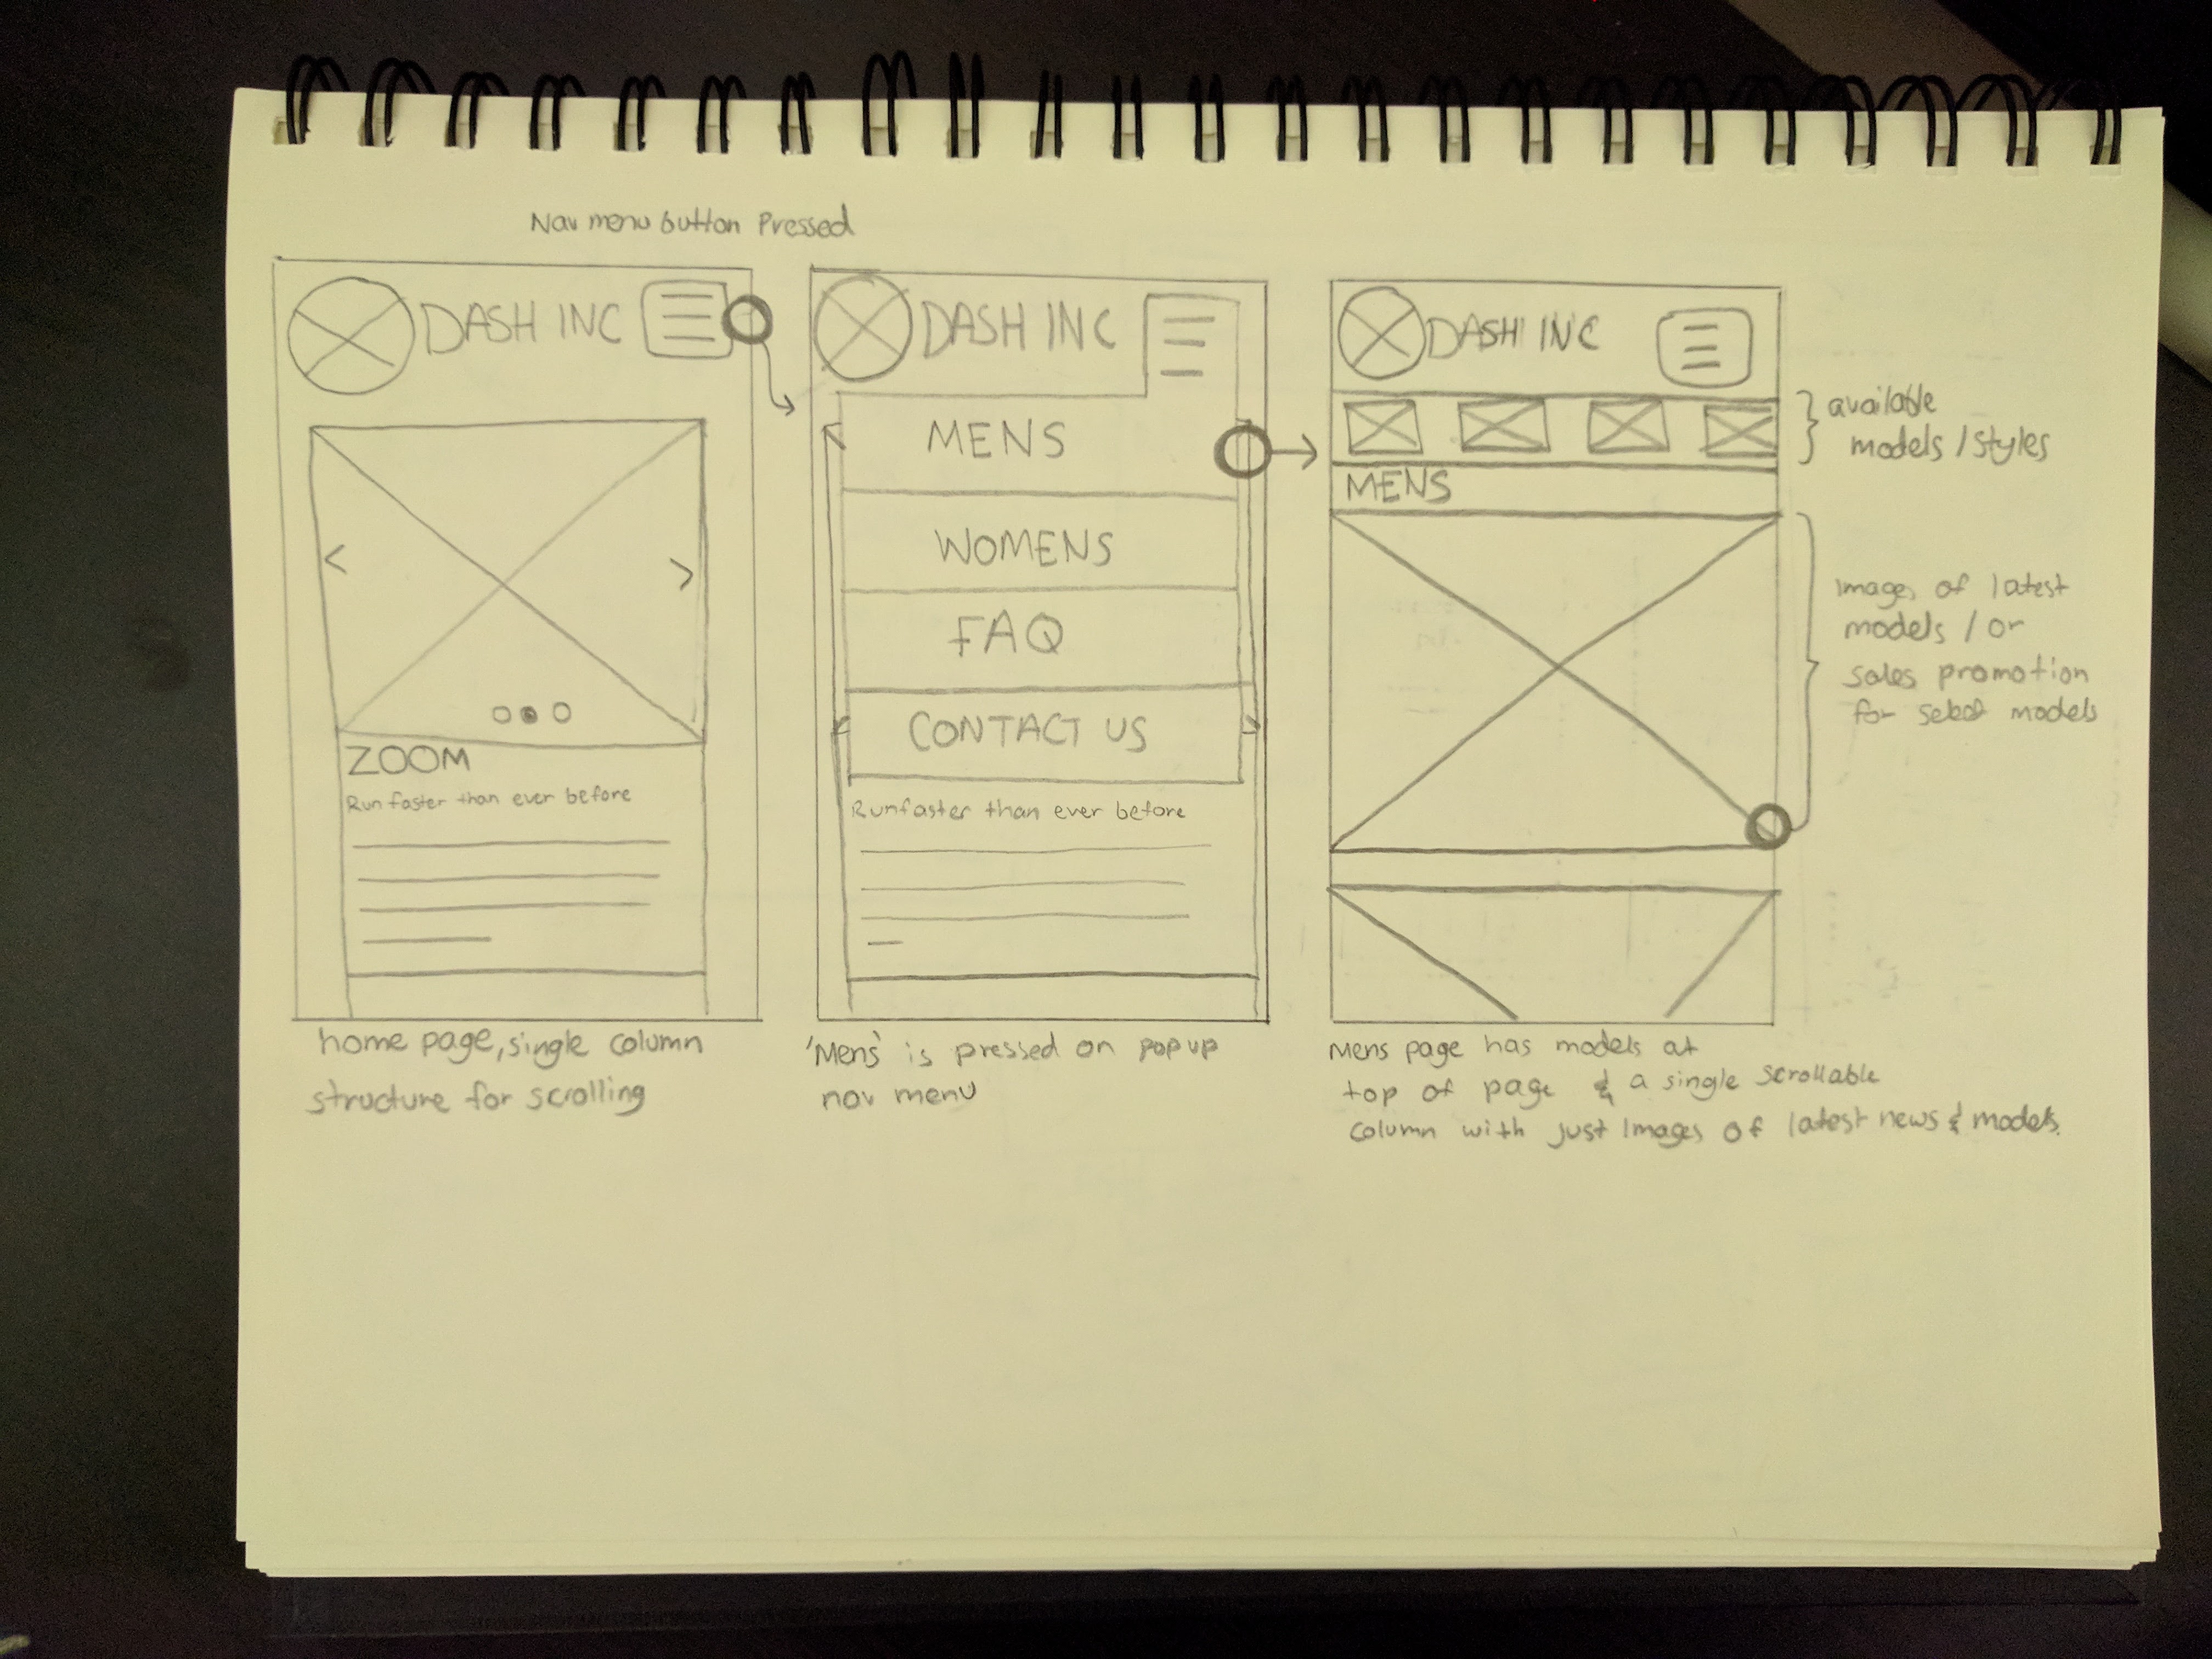 Nav menu button Pressed
DASH INC
ZOOM
Run faster than ever before
home page, single column
structure for scrolling
DASH INC
MENS
WOMENS
FAQ
CONTACT US
Run faster than ever before
'Mens' is pressed on pop up
nav menu
DASH INC
MENS
available
models / styles
Images of latest
models / or
sales promotion
for select models
Mens page has models at
top of page & a single scrollable
column with just Images of latest news & models.